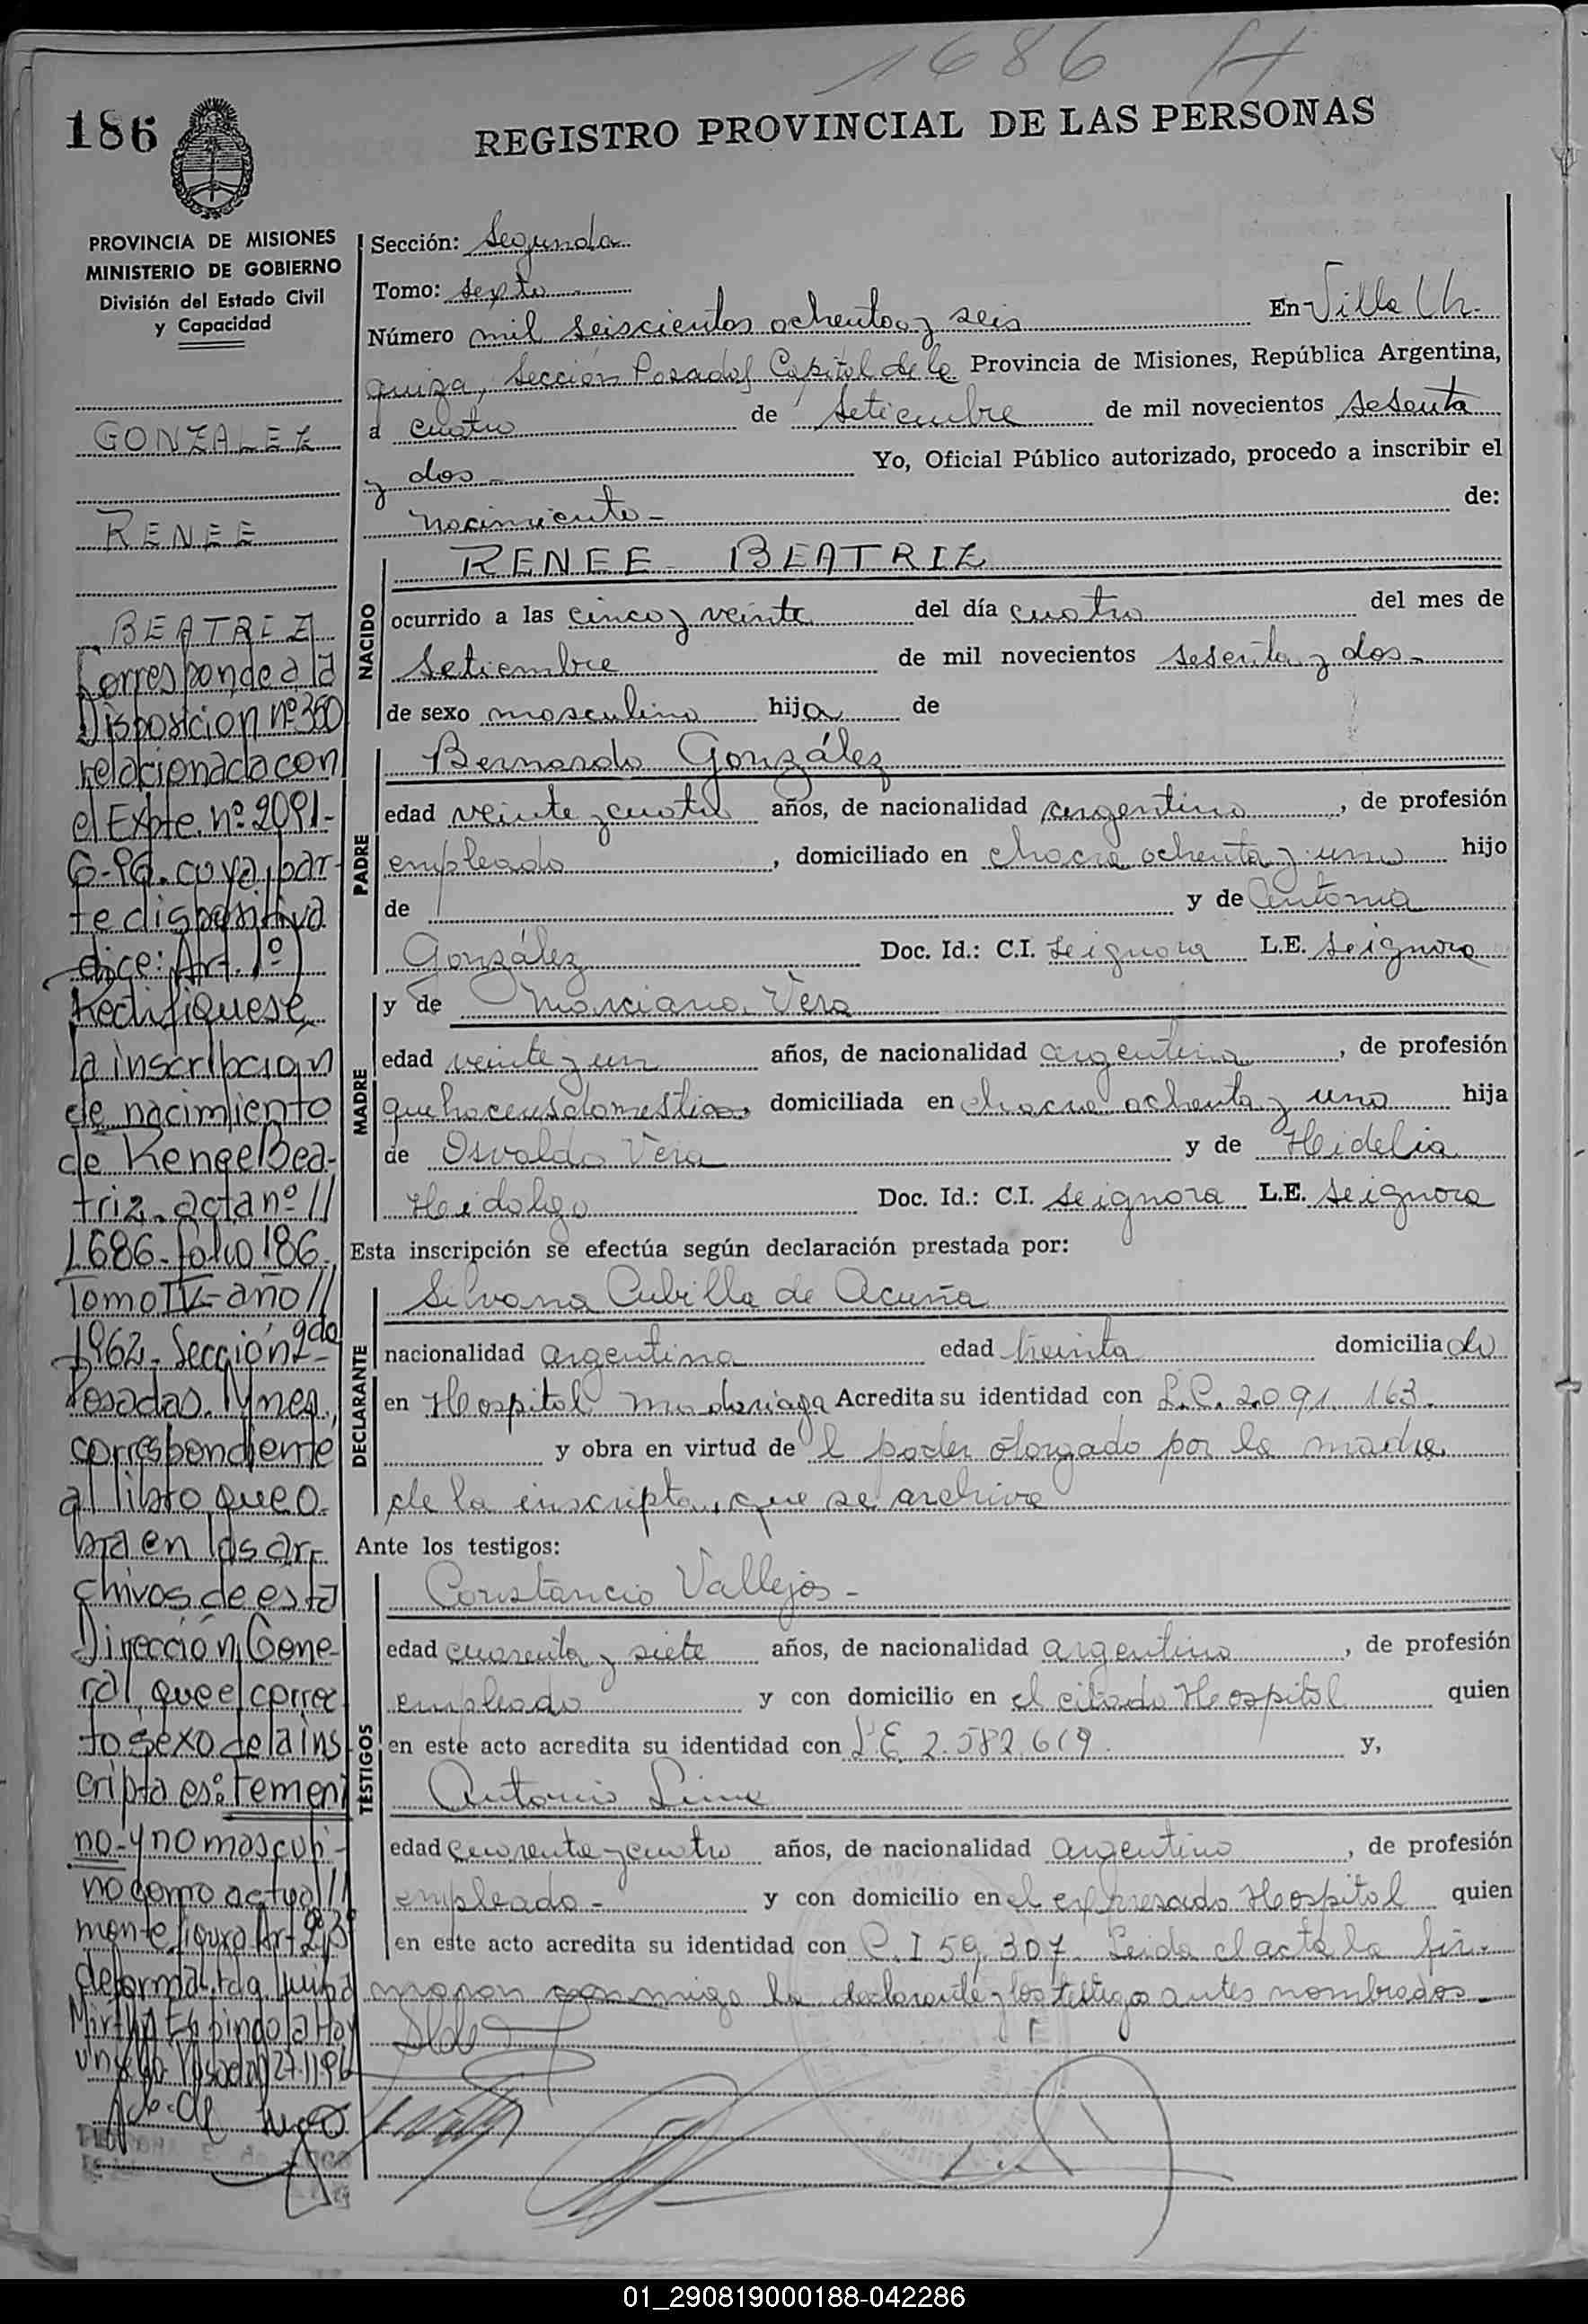 1686 H
186
REGISTRO PROVINCIAL DE LAS PERSONAS
PROVINCIA DE MISIONES
MINISTERIO DE GOBIERNO
División del Estado Civil
y Capacidad
GONZALEZ
RENEE
BEATRIZ
Corresponde a la
Disposicion nº 350
relacionada con
el Expte. nº 2091-
G-96. cuya par-
te dispositiva
dice: Art. 1º)
Rectifiquese
la inscripcion
de nacimiento
de Renee Bea-
triz. acta nº //
1686- folio 186.
Tomo IV- año //
1962- Sección 2da
Posadas. Mnes,
correspondiente
al libro que o-
bra en los ar-
chivos de esta
Dirección Gene-
ral, que el correc
to sexo de la ins
cripta es: Femeni
no- y no masculi-
no como actual //
mente figura Art 2º, 3º
de forma.
Sección: Segunda
Tomo: sexto
Número mil seiscientos ochenta y seis En Villa Ur-
quiza, Sección Posadas Capital de la Provincia de Misiones, República Argentina,
a cuatro de Setiembre de mil novecientos sesenta
y dos- Yo, Oficial Público autorizado, procedo a inscribir el
nacimiento- de:
NACIDO
RENEE BEATRIZ
ocurrido a las cinco y veinte del día cuatro del mes de
Setiembre de mil novecientos sesenta y dos-
de sexo masculino hija de
PADRE
Bernardo González
edad veinte y cuatro años, de nacionalidad argentino, de profesión
empleado, domiciliado en chacra ochenta y uno hijo
de y de Antonia
González Doc. Id.: C.I. se ignora L.E. se ignora
MADRE
y de Marciana Vera
edad veinte y un años, de nacionalidad argentina, de profesión
quehaceres domesticos domiciliada en chacra ochenta y uno hija
de Osvaldo Vera y de Hidelia
Heidalgo Doc. Id.: C.I. se ignora L.E. se ignora
Esta inscripción se efectúa según declaración prestada por:
DECLARANTE
Silvana Cubilla de Acuña
nacionalidad argentina edad treinta domiciliado
en Hospital Madariaga Acredita su identidad con L.C. 2.091.163.
y obra en virtud del poder otorgado por la madre
de la inscripta, que se archiva
Ante los testigos:
TESTIGOS
Constancio Vallejos-
edad cuarenta y siete años, de nacionalidad argentino, de profesión
empleado y con domicilio en el citado Hospital quien
en este acto acredita su identidad con L.E. 2.582.619. y,
Antonio
edad cuarenta y cuatro años, de nacionalidad argentino, de profesión
empleado- y con domicilio en el expresado Hospital quien
en este acto acredita su identidad con C.I 59.307. Leida el acta la fir-
maron conmigo la declarante y los testigos antes nombrados-
01_290819000188-042286